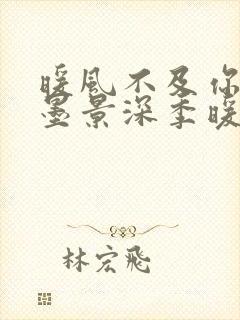 暖风不及你
墨景深季暖
林宏飛